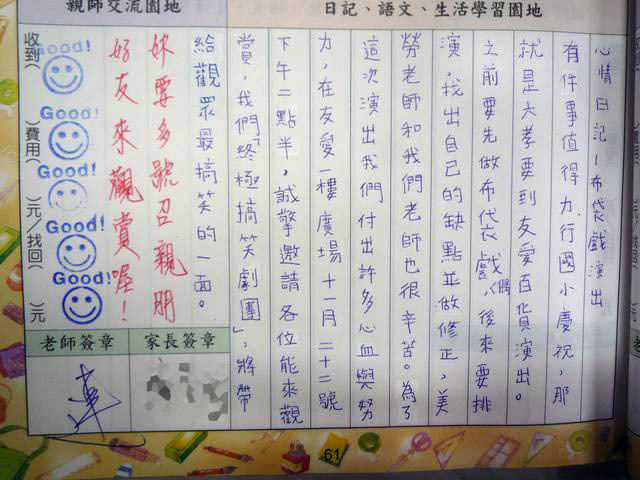 日記、語文、生活學習園地
心情日記-布袋戲演出
有件事值得力行國小慶祝,那
就是六孝要到友愛百貨演出。
之前要先做布袋戲偶,後來要排
演,找出自己的缺點並做修正,美
勞老師和我們老師也很辛苦。為了
這次演出我們付出許多心血與努
力,在友愛一樓廣場十一月二十二號
下午二點半,誠擎邀請各位能來觀
賞,我們「終極搞笑劇團」,將帶
給觀眾最搞笑的一面。
親師交流園地
妳要多號召親朋
好友來觀賞喔!
Good!
Good!
Good!
Good!
Good!
收到( )費用( )元/找回( )元
家長簽章
老師簽章
61